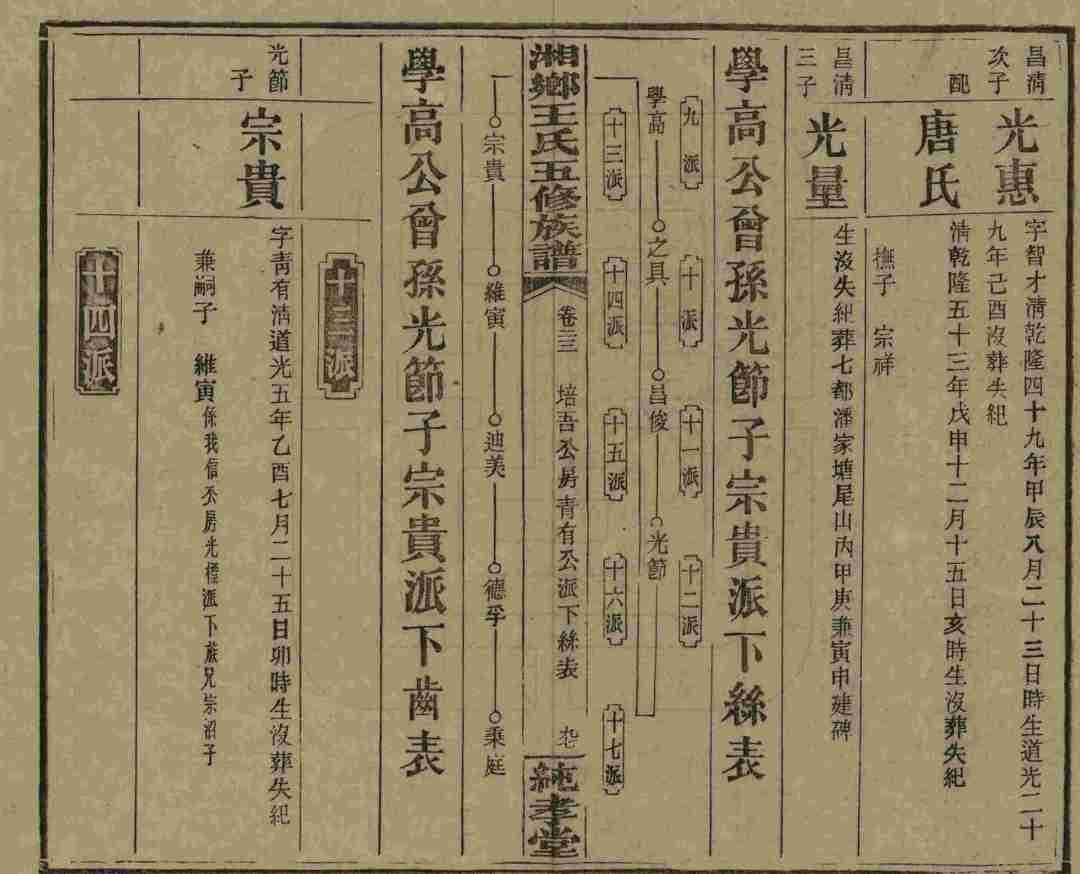 昌淸
次子
光惠
字智才淸乾隆四十九年甲辰八月二十三日時生道光二十
九年己酉沒葬失紀
配
唐氏
淸乾隆五十三年戊申十二月十五日亥時生沒葬失紀
撫子 宗祥
昌淸
三子
光量
生沒失紀葬七都潘家塘尾山丙甲庚兼寅申建碑
學高公曾孫光節子宗貴派下絲表
九派 十派 十一派 十二派
學高 之具 昌俊 光節
十三派 十四派 十五派 十六派 十七派
湘鄉王氏五修族譜 卷三三 培吾公房青有公派下絲表
純孝堂
宗貴 維寅 迪美 德孚 秉庭
學高公曾孫光節子宗貴派下齒表
十三派
光節
子
宗貴
字靑有淸道光五年乙酉七月二十五日卯時生沒葬失紀
兼嗣子 維寅係我信公房光檉派下族兄宗沼子
十四派